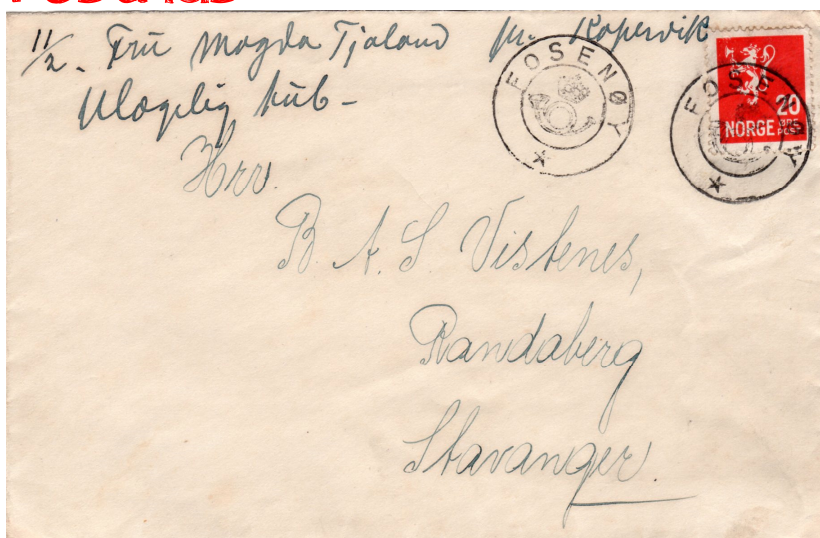 11/2. Fru Magda Tjøland pr. Kopervik
kub-
FOSENØY
FOSENØY
20
NORGE ØRE
POST
Hrr.
B. A. S. Vistenes,
Randaberg
Stavanger.